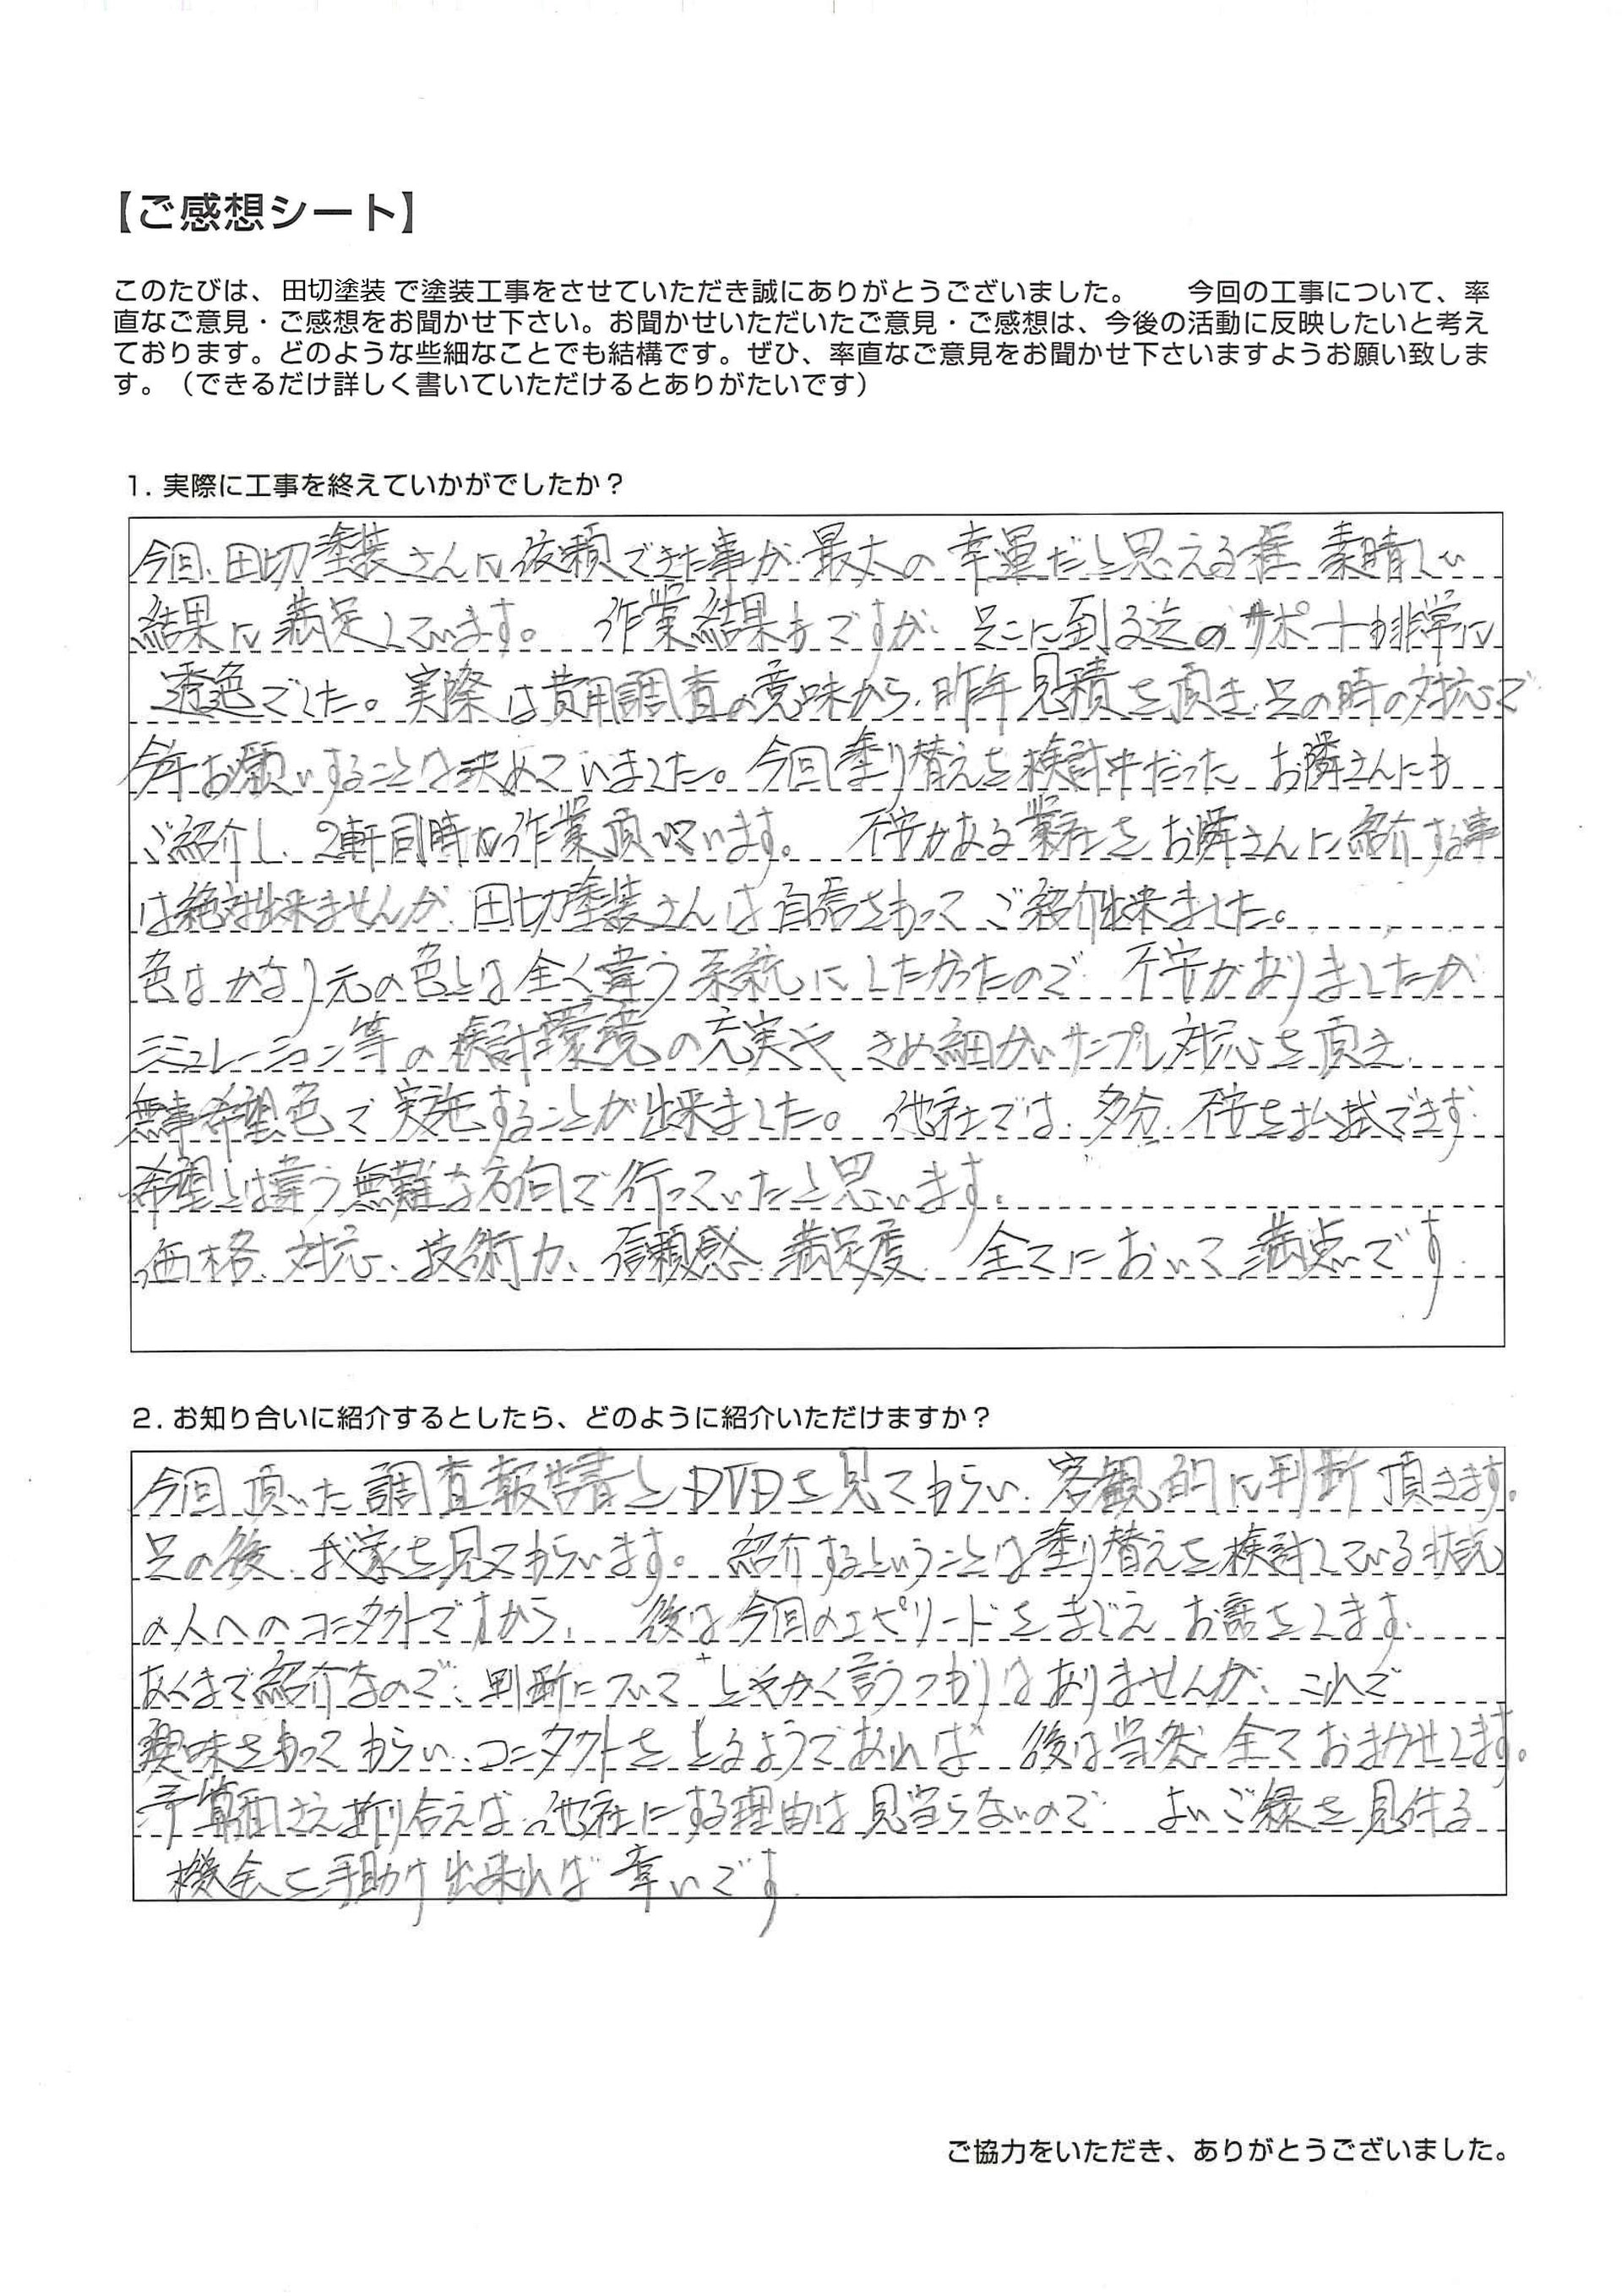 【ご感想シート】
このたびは、田切塗装で塗装工事をさせていただき誠にありがとうございました。　今回の工事について、率
直なご意見・ご感想をお聞かせ下さい。お聞かせいただいたご意見・ご感想は、今後の活動に反映したいと考え
ております。どのような些細なことでも結構です。ぜひ、率直なご意見をお聞かせ下さいますようお願い致しま
す。（できるだけ詳しく書いていただけるとありがたいです）
1. 実際に工事を終えていかがでしたか？
今回、田切塗装さんに依頼できた事が、最大の幸運だと思える程 素晴しい
結果に満足しています。 作業結果もですが、そこに到る迄のサポートも非常に
でした。実際は費用調査の意味から、昨年見積を頂き、その時の対応で
今年お願いすることは決めていました。今回塗り替えを検討中だった お隣さんにも
ご紹介し、2軒同時に作業頂いています。 不安がある業社をお隣さんに紹介する事
は絶対出来ませんが、田切塗装さんは自信をもって ご紹介出来ました。
色はかなり元の色とは全く違う系統にしたかったので、不安がありましたが
シミュレーション等の検討環境の充実や、きめ細かいサンプル対応を頂き、
無事希望色で実施することが出来ました。他社では、多分、不安を払拭できず
希望とは違う無難な方向で行っていたと思います。
価格、対応、技術力、信頼感、満足度、全てにおいて満点です
2. お知り合いに紹介するとしたら、どのように紹介いただけますか？
今回頂いた調査報告書とDVDを見てもらい、客観的に判断頂きます。
その後、我家を見てもらいます。紹介するということは塗り替えを検討している状況
の人へのコンタクトですから、 後は今回のエピソードをまじえ お話をします。
あくまで紹介なので、判断について とやかく言うつもりはありませんが、これで
興味をもってもらい、コンタクトをとるようであれば 後は当然 全ておまかせします。
予算面さえ折り合えば、他社にする理由は見当らないので よいご縁を見付る
機会に手助け出来れば幸いです
ご協力をいただき、ありがとうございました。